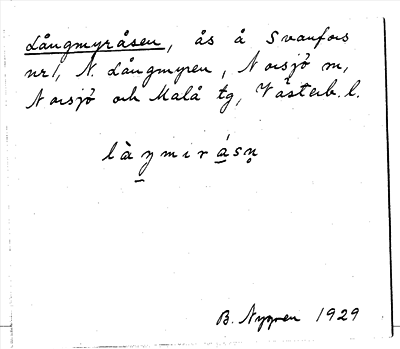 Långmyråsen, ås å Svanfors
nr1, N. Långmyren, Norsjö sn,
Norsjö och Malå tg, Västerb. l.
làŋmirásn̥
B. Nygren 1929